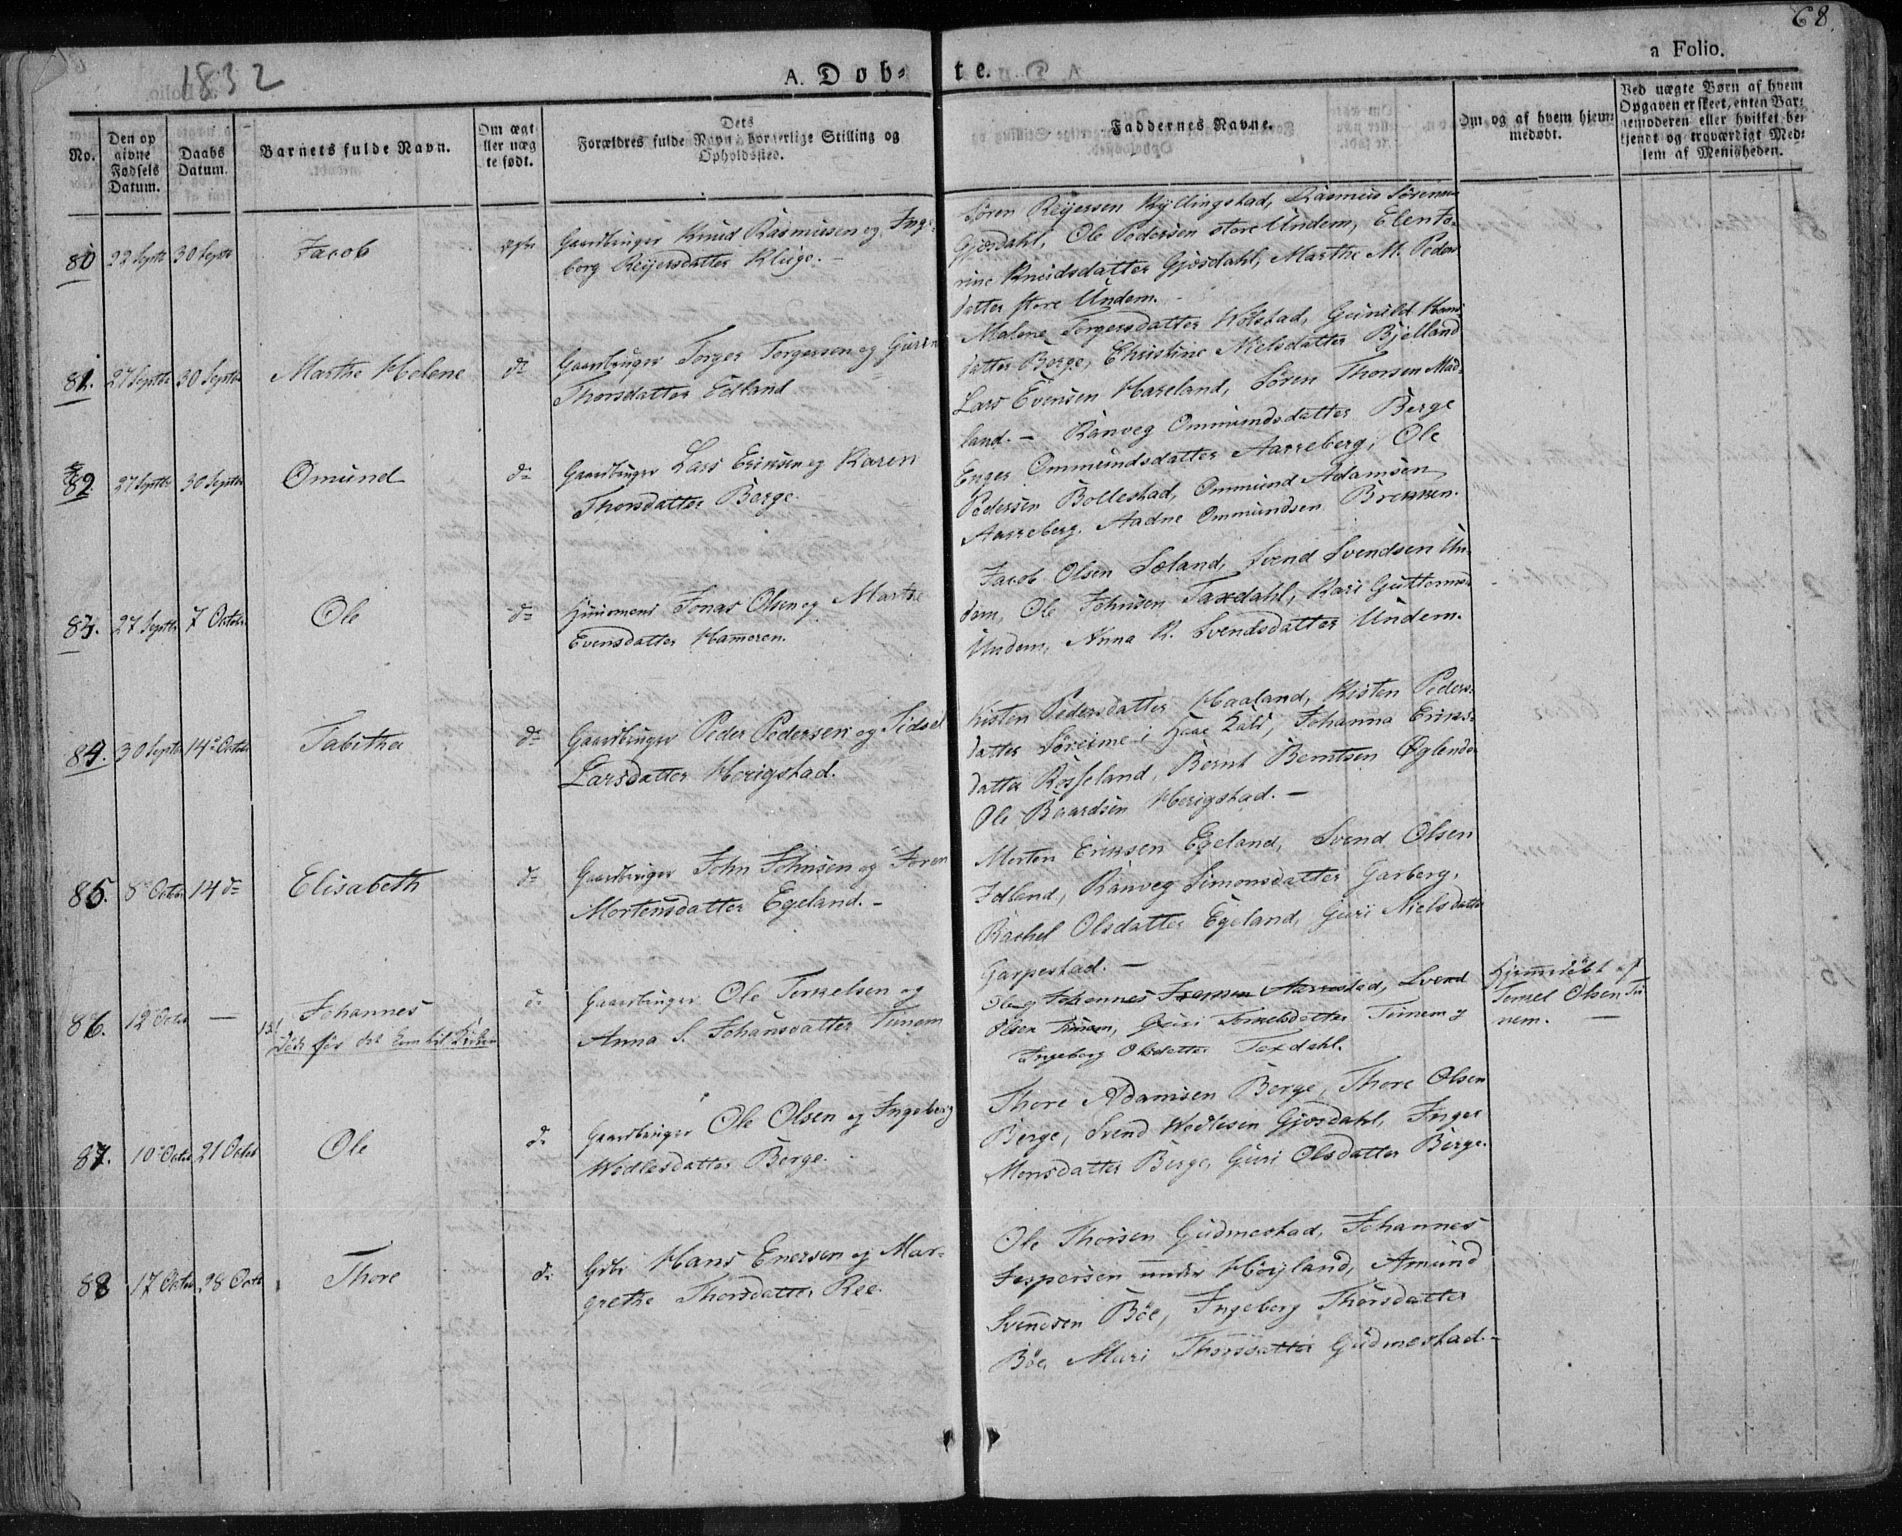 1832
68
A. Döb-
te.
a Folio.
No.
Den op
givne
Fødsels
Datum.
Daabs
Datum.
Barnets fulde Navn.
Om ægt
eller uæg
te født.
Dets
Forældres fulde Navn, borgerlige Stilling og
Opholdssted.
Faddernes Navne.
Om og af hvem hjem-
medøbt.
Ved uægte Børn af hvem
Opgaven er skeet, enten Bar-
nemoderen eller hvilket be-
kjendt og troværdigt Med-
lem af Menigheden.
80 22 Septbr 30 Septbr Jacob ægte
Gaardbruger Knud Rasmussen og Inge-
borg Reijersdatter Kluge. -
Søren Reijersen Kyllingstad, Rasmus Sørensen
Gjøsdahl, Ole Pedersen store Undem, Elen To-
rine Knudsdatter Gjøsdahl, Marthe M. Peders
datter store Undem. -
81. 27 Septbr 30 Septbr Marthe Helene do
Gaardbruger Torger Torgersen og Guri
Thorsdatter Edland
Malene Torgersdatter Kølstad, Gunild Hans
datter Berge, Christine Nielsdatter Bjelland
Lars Evensen Hareland, Søren Thorsen Mad-
land. -
82 27 Septbr 30 Septbr Omund do
Gaardbruger Lars Eriksen og Karen
Thorsdatter Berge.
Ranveg Ommundsdatter Berge
Enger Ommundsdatter Aarreberg, Ole
Pedersen Bollestad, Ommund Adamsen
Aarreberg, Aadne Ommundsen Brekken.
83. 27 Septbr 7 October Ole do
Huusmand Jonas Olsen og Marthe
Evensdatter Hammeren.
Jacob Olsen Sæland, Svend Svendsen Un-
dem, Ole Johnsen Taxdahl, Kari Guttormsd
Undem, Anna R. Svendsdatter Undem.
84. 30 Septbr 14 October Tabitha do
Gaardbruger Peder Pedersen og Sidsel
Larsdatter Herigstad.
Kisten Pedersdatter Haaland, Kisten Peders-
datter Søreime i Haae, Johanna Eriks-
datter Rosseland, Bernt Berntsen Øglende
Ole Baardsen Herigstad. -
85. 8 Octbr 14 do Elisabeth do
Gaardbruger John Johnsen og Joren
Mortensdatter Egeland. -
Morten Eriksen Egeland, Svend Olsen
Edland, Ranveg Simonsdatter Garberg,
Rachel Olsdatter Egeland, Guri Nielsdatter
Garpestad. -
86. 12 Octbr - Johannes do
Døde før det kom til Kirken
Gaardbruger Ole Terkelsen og
Anna S. Johansdatter Tunem
Ole og Johannes Iversen Aarrestad, Svend
Olsen Tunem, Guri Terkelsdatter Tunem og
Ingeborg Olsdatter Taxdahl.
Hjemmedøbt af
Terkel Olsen Tu-
nem. -
87. 10 Octbr 21 Octbr Ole do
Gaardbruger Ole Olsen og Ingeborg
Wedlesdatter Berge.
Thore Adamsen Berge, Thore Olsen
Berge, Svend Wedlesen Gjøsdahl, Inger
Monsdatter Berge, Guri Olsdatter Berge.
88 17 Octbr 28 Octbr Thore do
Gdbr Hans Enersen og Mar-
grethe Thorsdatter Ree.
Ole Thorsen Gudmestad, Johannes
Jespersen under Høyland, Amund
Svendsen Bøe, Ingeberg Thorsdatter
Bøe, Mari Thorsdatter Gudmestad. -